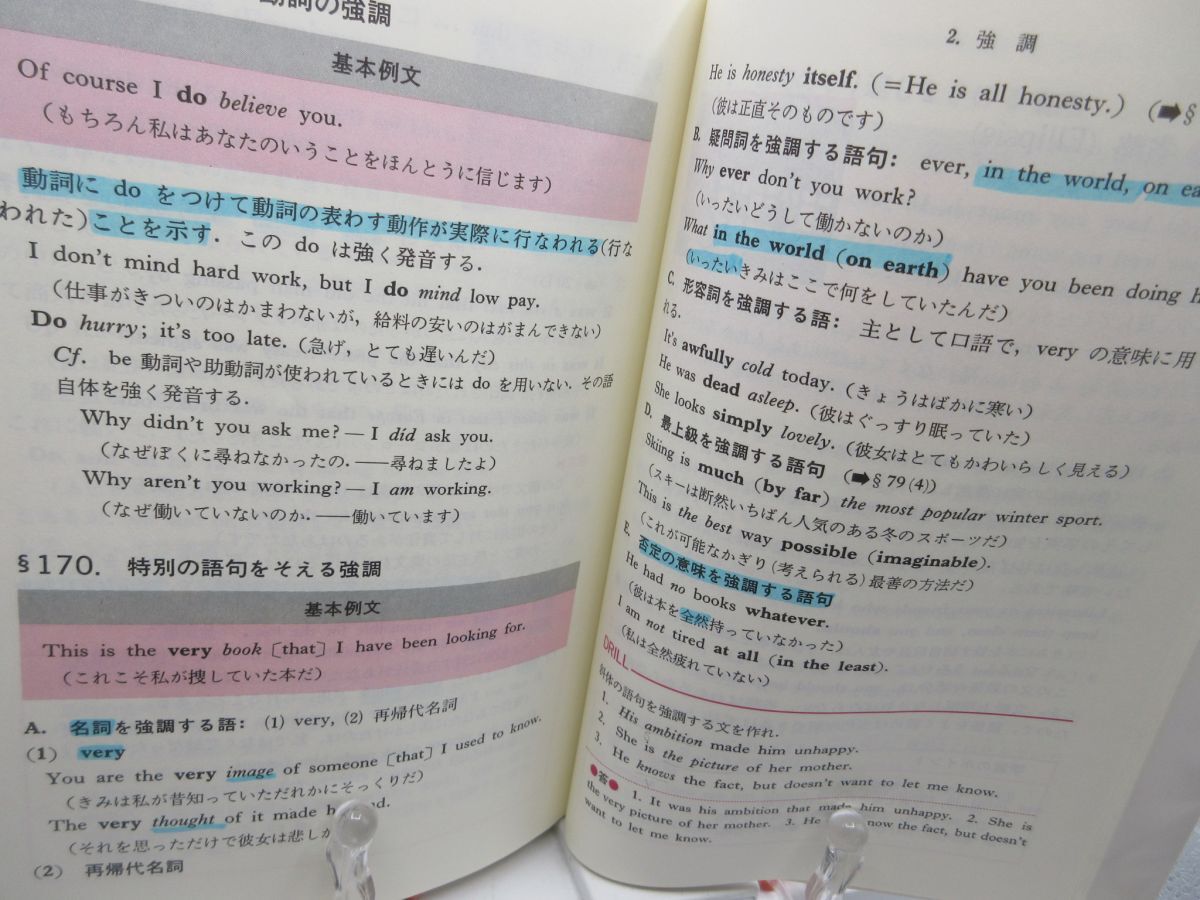 動詞の強調
基本例文
Of course I do believe you.
(もちろん私はあなたのいうことをほんとうに信じます)
動詞に do をつけて動詞の表わす動作が実際に行なわれる(行な
われた)ことを示す. この do は強く発音する.
I don't mind hard work, but I do mind low pay.
(仕事がきついのはかまわないが, 給料の安いのはがまんできない)
Do hurry; it's too late. (急げ, とても遅いんだ)
Cf. be 動詞や助動詞が使われているときには do を用いない. その語
自体を強く発音する.
Why didn't you ask me? — I did ask you.
(なぜぼくに尋ねなかったの. ——尋ねましたよ)
Why aren't you working? — I am working.
(なぜ働いていないのか. ——働いています)
§170. 特別の語句をそえる強調
基本例文
This is the very book [that] I have been looking for.
(これこそ私が捜していた本だ)
A. 名詞を強調する語: (1) very, (2) 再帰代名詞
(1) very
You are the very image of someone [that] I used to know.
(きみは私が昔知っていただれかにそっくりだ)
The very thought of it made h
(それを思っただけで彼女は悲し
(2) 再帰代名詞
2. 強 調
He is honesty itself. (=He is all honesty.) (➡§
(彼は正直そのものです)
B. 疑問詞を強調する語句: ever, in the world, on ea
Why ever don't you work?
(いったいどうして働かないのか)
What in the world (on earth) have you been doing h
(いったいきみはここで何をしていたんだ)
C. 形容詞を強調する語: 主として口語で, very の意味に用
れる.
It's awfully cold today. (きょうはばかに寒い)
He was dead asleep. (彼はぐっすり眠っていた)
She looks simply lovely. (彼女はとてもかわいらしく見える)
D. 最上級を強調する語句 (➡§79(4))
Skiing is much (by far) the most popular winter sport.
(スキーは断然いちばん人気のある冬のスポーツだ)
This is the best way possible (imaginable).
(これが可能なかぎり(考えられる)最善の方法だ)
E. 否定の意味を強調する語句
He had no books whatever.
(彼は本を全然持っていなかった)
I am not tired at all (in the least).
(私は全然疲れていない)
DRILL
斜体の語句を強調する文を作れ.
1. His ambition made him unhappy.
2. She is the picture of her mother.
3. He knows the fact, but doesn't want to let me know.
●答● 1. It was his ambition that made him unhappy. 2. She is
the very picture of her mother. 3. He now the fact, but doesn't
want to let me know.